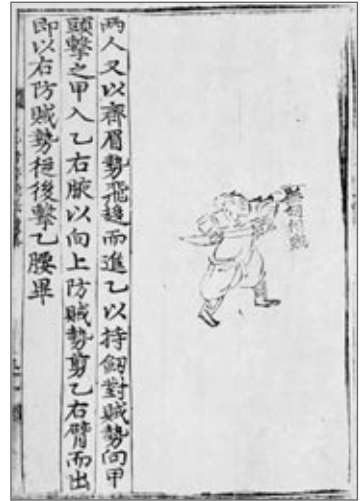 两人又以齊眉勢飛趍而進乙以持劒對賊勢向甲
頭擊之甲入乙右腋以向上防賊勢剪乙右臂而出
即以右防賊勢從後擊乙腰畢